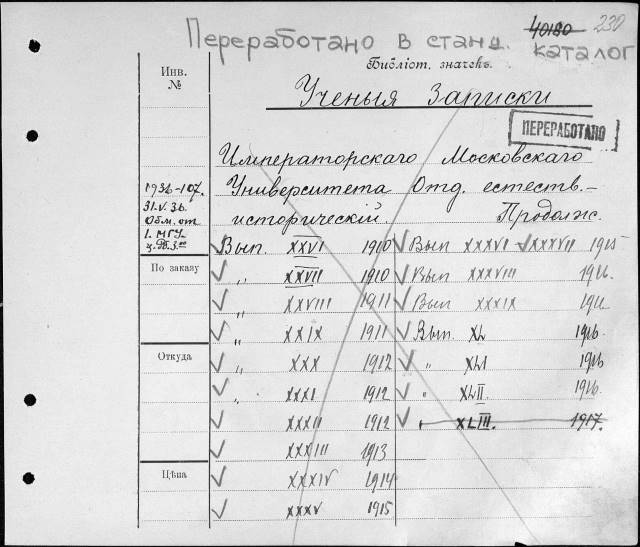 40180 230
Переработано в станц. каталог
Библіот. значекъ.
Инв. №
Ученыя Записки
ПЕРЕРАБОТАНО
Императорскаго Московскаго
Университета Отд. естеств.-
историческій. Продолж.
1936-107.
31.V.36.
Обм. от
1. МГУ
По заказу
Откуда
Цѣна
Вып. XXVI 1910
„ XXVII 1910
„ XXVIII 1911
„ XXIX 1911
„ XXX 1912
„ XXXI 1912
XXXII 1912
XXXIII 1913
XXXIV 1914
XXXV 1915
Вып XXXVI XXXVII 1915
Вып XXXVIII 1916.
Вып XXXIX
Вып. XL 1916
„ XLI 1916
„ XLII 1916
XLIII. 1917.